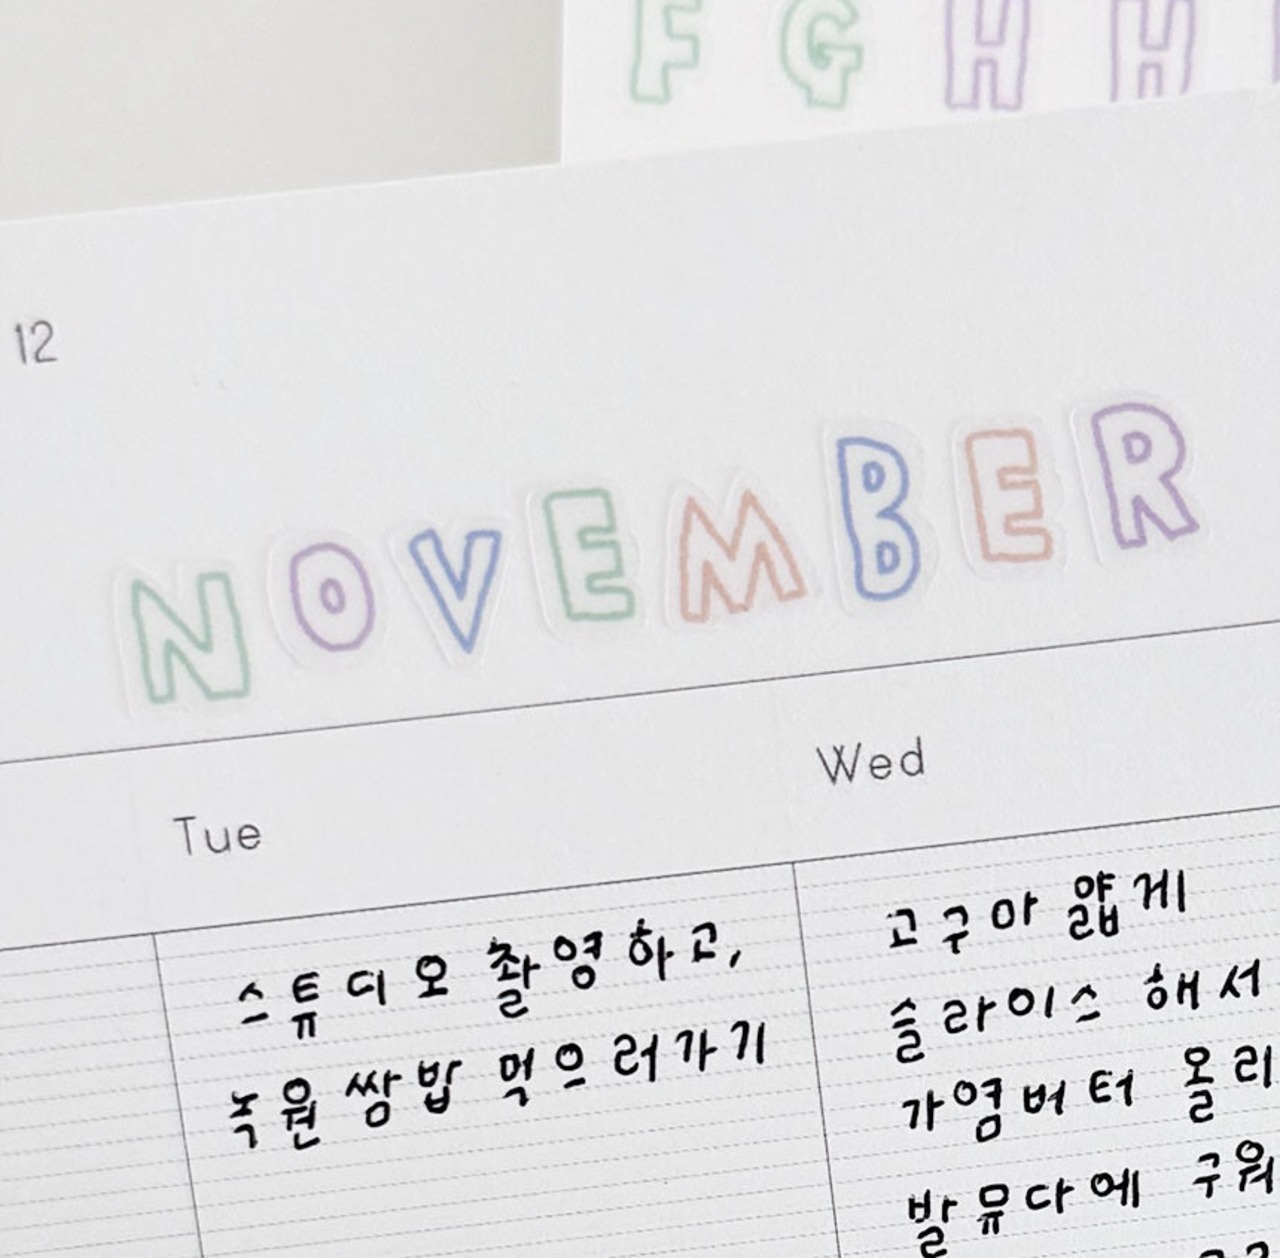 F G H H
12
NOVEMBER
Tue
Wed
스튜디오 촬영하고,
녹원 쌈밥 먹으러가기
고구마 얇게
슬라이스 해서
가염버터 올리
발뮤다에 구워